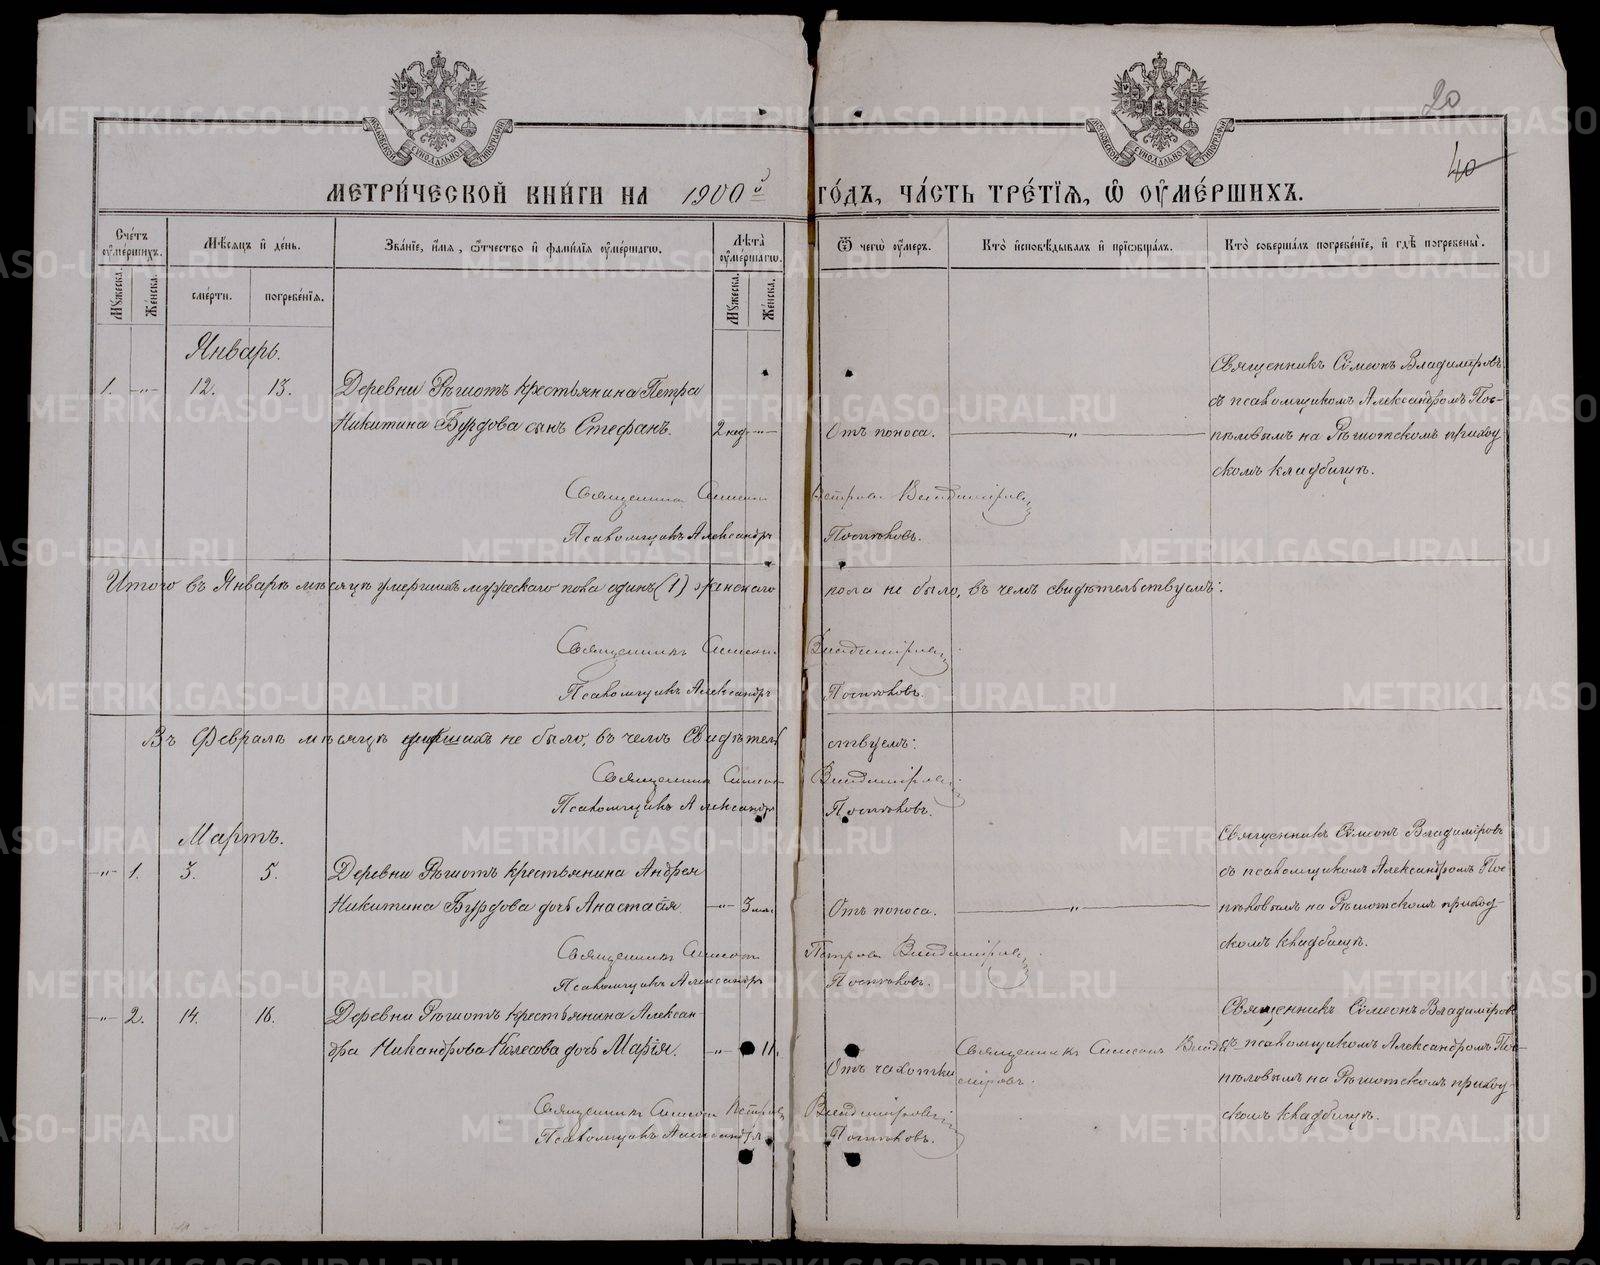 20
40
МОСКОВСКОЙ СѴНОДАЛЬНОЙ ТИПОГРАФІИ
МОСКОВСКОЙ СѴНОДАЛЬНОЙ ТИПОГРАФІИ
МЕТРИ́ЧЕСКОЙ КНИ́ГИ НА 1900й ГО́ДЪ, ЧА́СТЬ ТРЕ́ТІѦ, Ѡ ОУМЕ́РШИХЪ.
Сче́тъ оумершихъ.
Мꙋжеска.
Же́нска.
Мѣ́сяцъ и де́нь.
сме́рти.
погребе́нїѧ.
Зва́нїе, и́мѧ, ѻ҆́тчество и фами́лїѧ оуме́ршагѡ.
Лѣ́та оуме́ршагѡ.
Мꙋжеска.
Же́нска.
Ѿ чегѡ̀ оу́меръ.
Кто̀ и҆сповѣ́дывалъ и҆ прїѡбща́лъ.
Кто̀ соверша́лъ погребе́нїе, и҆ гдѣ̀ погребены̀.
Январь.
1. -"- 12. 13. Деревни Рѣшотъ крестьянина Петра
Никитина Бурдова сынъ Стефанъ. 2 нед. -"- Отъ поноса. "
Священникъ Сѵмеонъ Владиміровъ
съ псаломщикомъ Александромъ Пос-
пѣловымъ на Рѣшотскомъ приход-
скомъ кладбищѣ.
Священникъ Симеонъ Петровъ Владиміровъ
Псаломщикъ Александръ Поспѣловъ.
Итого въ Январѣ мѣсяцѣ умершихъ мужескаго пола одинъ (1) женскаго пола не было, въ чемъ свидѣтельствуемъ:
Священникъ Симеонъ Владиміровъ.
Псаломщикъ Александръ Поспѣловъ.
Въ Февралѣ мѣсяцѣ умершихъ не было, въ чемъ свидѣтельствуемъ:
Священникъ Симеонъ Владиміровъ.
Псаломщикъ Александръ Поспѣловъ.
Мартъ.
-"- 1. 3. 5. Деревни Рѣшотъ крестьянина Андрея
Никитина Бурдова дочь Анастасія -"- 3 мѣс. Отъ поноса. "
Священникъ Сѵмеонъ Владиміровъ
съ псаломщикомъ Александромъ Пос-
пѣловымъ на Рѣшотскомъ приход-
скомъ кладбищѣ.
Священникъ Симеонъ Петровъ Владиміровъ.
Псаломщикъ Александръ Поспѣловъ.
-"- 2. 14. 16. Деревни Рѣшотъ крестьянина Алексан-
дра Никандрова Колесова дочь Марія. -"- 11.
Отъ чахотки
Священникъ Симеонъ Влади-
міровъ.
Священникъ Сѵмеонъ Владиміровъ
съ псаломщикомъ Александромъ Пос-
пѣловымъ на Рѣшотскомъ приход-
скомъ кладбищѣ.
Священникъ Симеонъ Петровъ Владиміровъ
Псаломщикъ Александръ Поспѣловъ.
METRIKI.GASO-URAL.RU